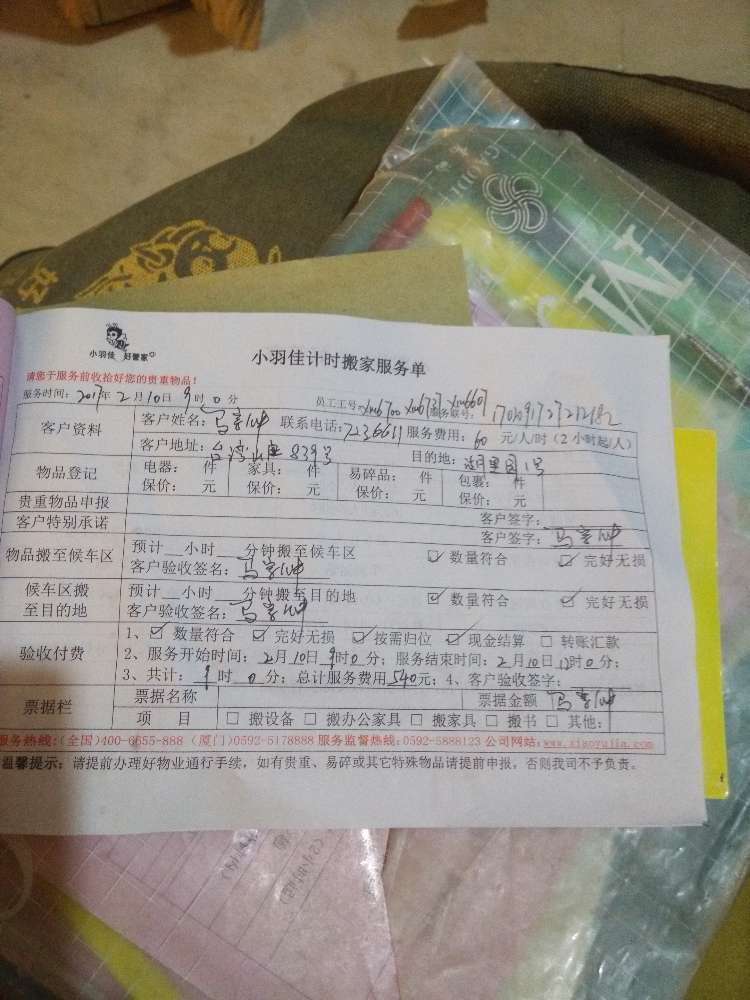 GAODI
W
小羽佳 好管家
小羽佳计时搬家服务单
请您于服务前收拾好您的贵重物品!
服务时间: 2017年 2月 10日 9时 0分 员工工号: xm6700 服务联号:
客户资料
客户姓名: 联系电话: 7236611 服务费用: 60 元/人/时(2小时起/人)
客户地址: 839号 目的地: 1号
物品登记
电器: 件 家具: 件 易碎品: 件 包裹: 件
保价: 元 保价: 元 保价: 元 保价: 元
贵重物品申报 客户签字:
客户特别承诺 客户签字:
物品搬至候车区
预计__小时___分钟搬至候车区 ☑ 数量符合 ☑ 完好无损
客户验收签名:
候车区搬至目的地
预计__小时___分钟搬至目的地 ☑ 数量符合 ☑ 完好无损
客户验收签名:
验收付费
1、☑ 数量符合 ☑ 完好无损 ☑ 按需归位 ☑ 现金结算 □ 转账汇款
2、服务开始时间: 2月10日9时0分; 服务结束时间: 2月10日12时0分;
3、共计: 9时 0分; 总计服务费用540元; 4、客户验收签字:
票据栏
票据名称 票据金额
项 目 □ 搬设备 □ 搬办公家具 □ 搬家具 □ 搬书 □ 其他:
服务热线:(全国)400-6655-888 (厦门)0592-5178888 服务监督热线:0592-5888123 公司网站:www.xiaoyujia.com
温馨提示: 请提前办理好物业通行手续, 如有贵重、易碎或其它特殊物品请提前申报, 否则我司不予负责。